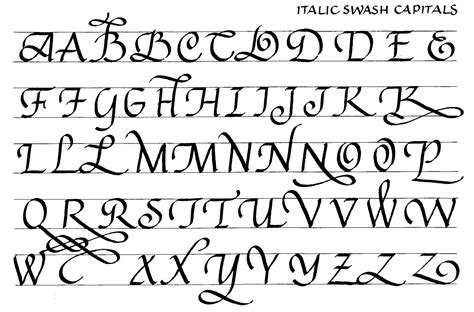 ITALIC SWASH CAPITALS
A A B B C C D D D E E
F F G G H H I I J J K K
L L L M M N N N O O P
Q R R S T T U U V V W W
W C X X Y Y Y Z Z Z